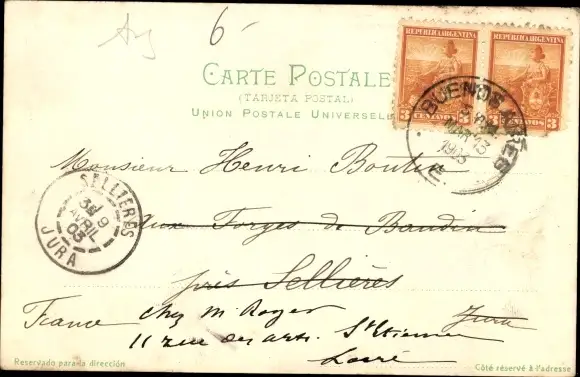 Arg
6-
REPUBLICA ARGENTINA REPUBLICA ARGENTINA
3 CENTAVOS 3 3 CENTAVOS 3
BUENOS AIRES
MAR 13
1903
CARTE POSTALE
(TARJETA POSTAL)
UNION POSTALE UNIVERSELLE
Monsieur Henri Boutin
Aux Forges de Baudin
près Sellières
Jura
SELLIERES
9
AVRIL
03
JURA
France chez M. Roger
11 rue des arts. St Etienne
Loire
Reservado para la dirección
Côté réservé à l'adresse